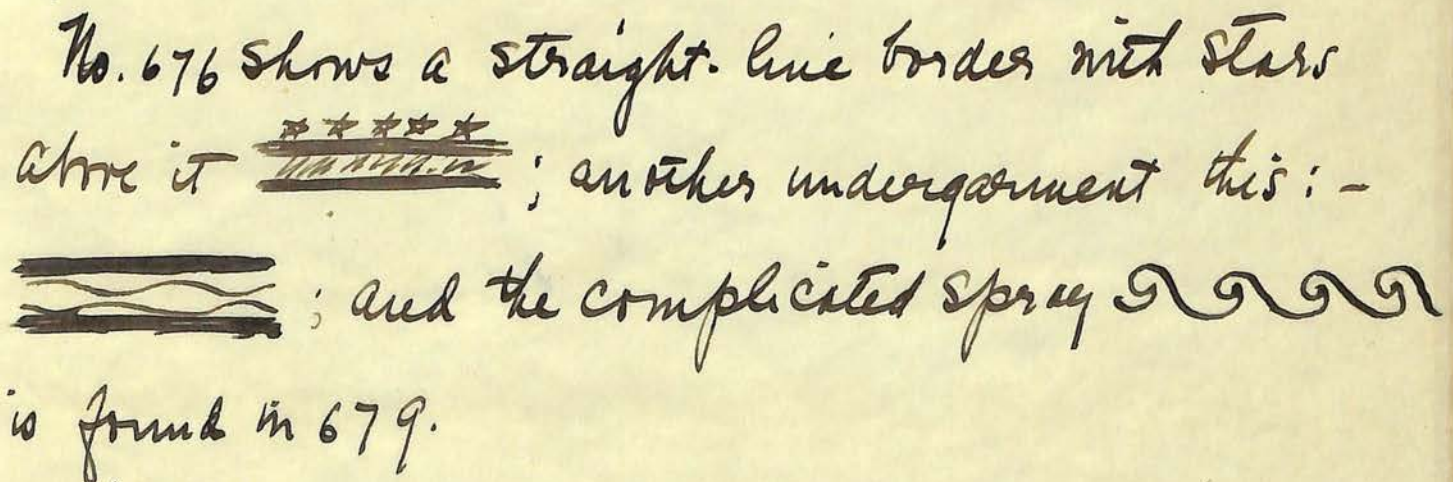 No. 676 shows a straight-line border with stars
above it ; another undergarment this: -
; and the complicated spray
is found in 679.